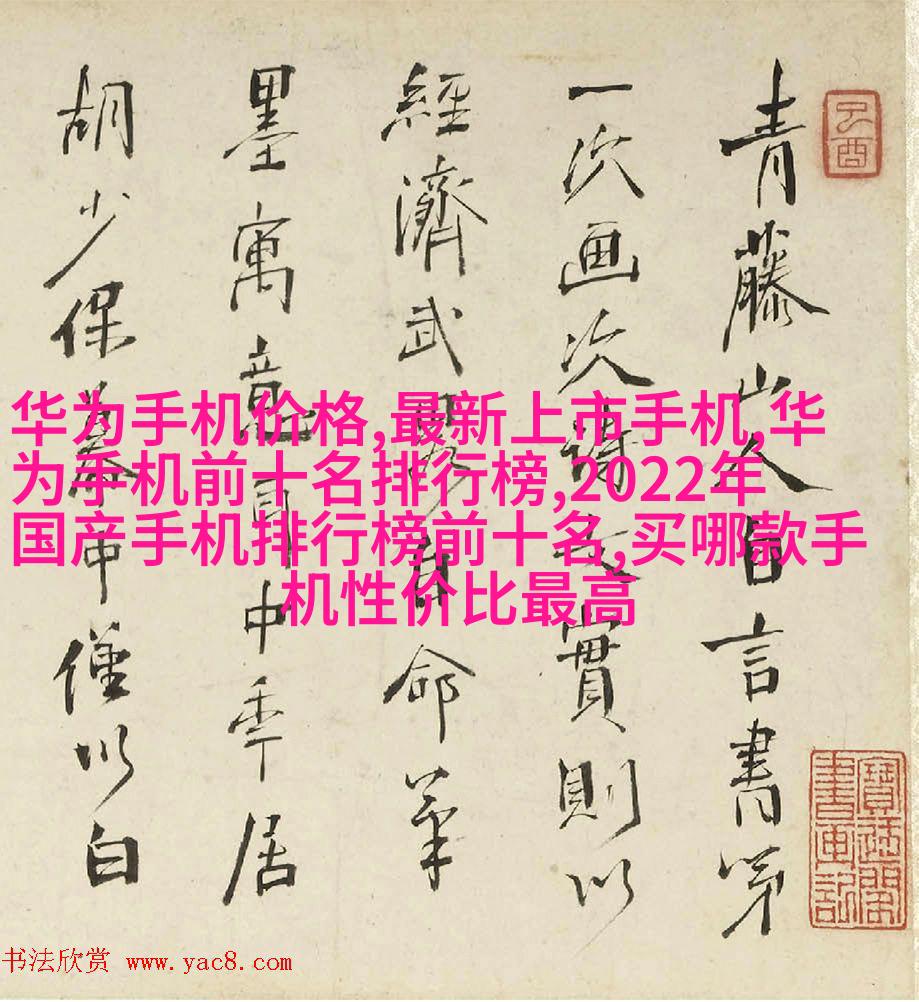 青藤山人自言書第
一次画次詩文實則以
經濟武略自命筆
墨寓意耳中年居
胡少保幕中僅以白
己酉
寶迂閣
書畫記
华为手机价格,最新上市手机,华
为手机前十名排行榜,2022年
国产手机排行榜前十名,买哪款手
机性价比最高
书法欣赏 www.yac8.com